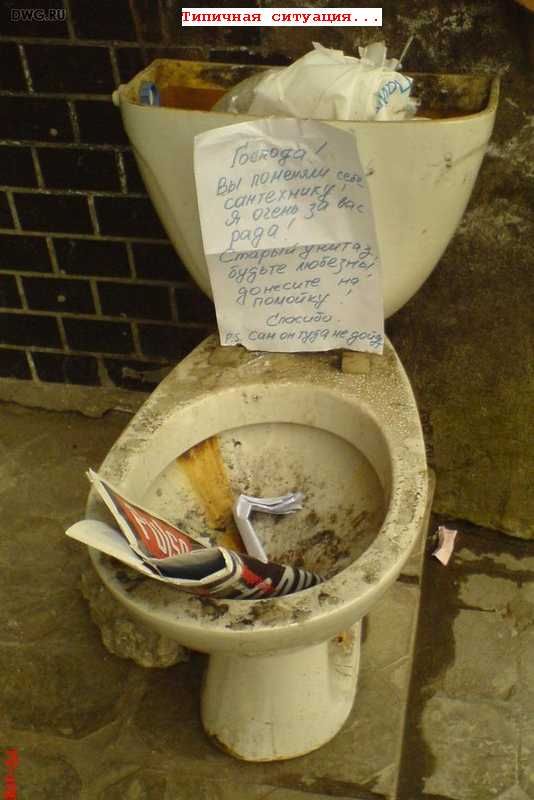 DWG.RU
Типичная ситуация...
Господа!
Вы поменяли себе
сантехнику!
Я очень за вас
рада!
Старый унитаз,
будьте любезны
донесите на
помойку!
Спасибо.
P.S. Сам он туда не дойд